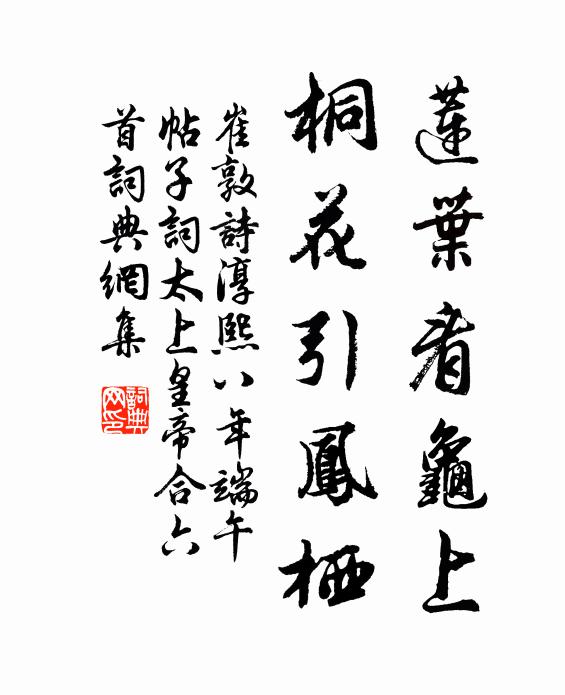 蓮葉看龜上
桐花引鳳栖
崔敦詩淳熙八年端午
帖子詞太上皇帝合六
首詞典網集
詞典网印